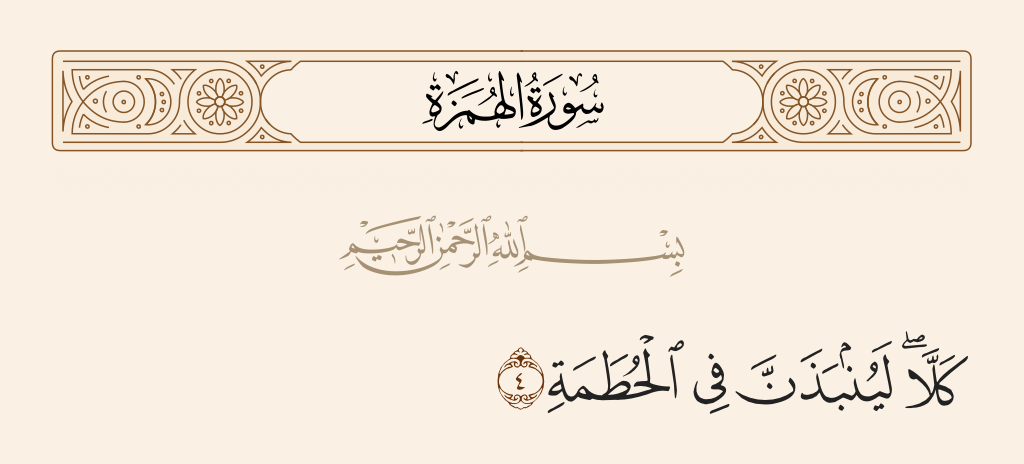 سُورَةُ الهُمَزَةِ
بِسْمِ ٱللَّهِ ٱلرَّحْمَٰنِ ٱلرَّحِيمِ
كَلَّاۖ لَيُنۢبَذَنَّ فِى ٱلْحُطَمَةِ ٤